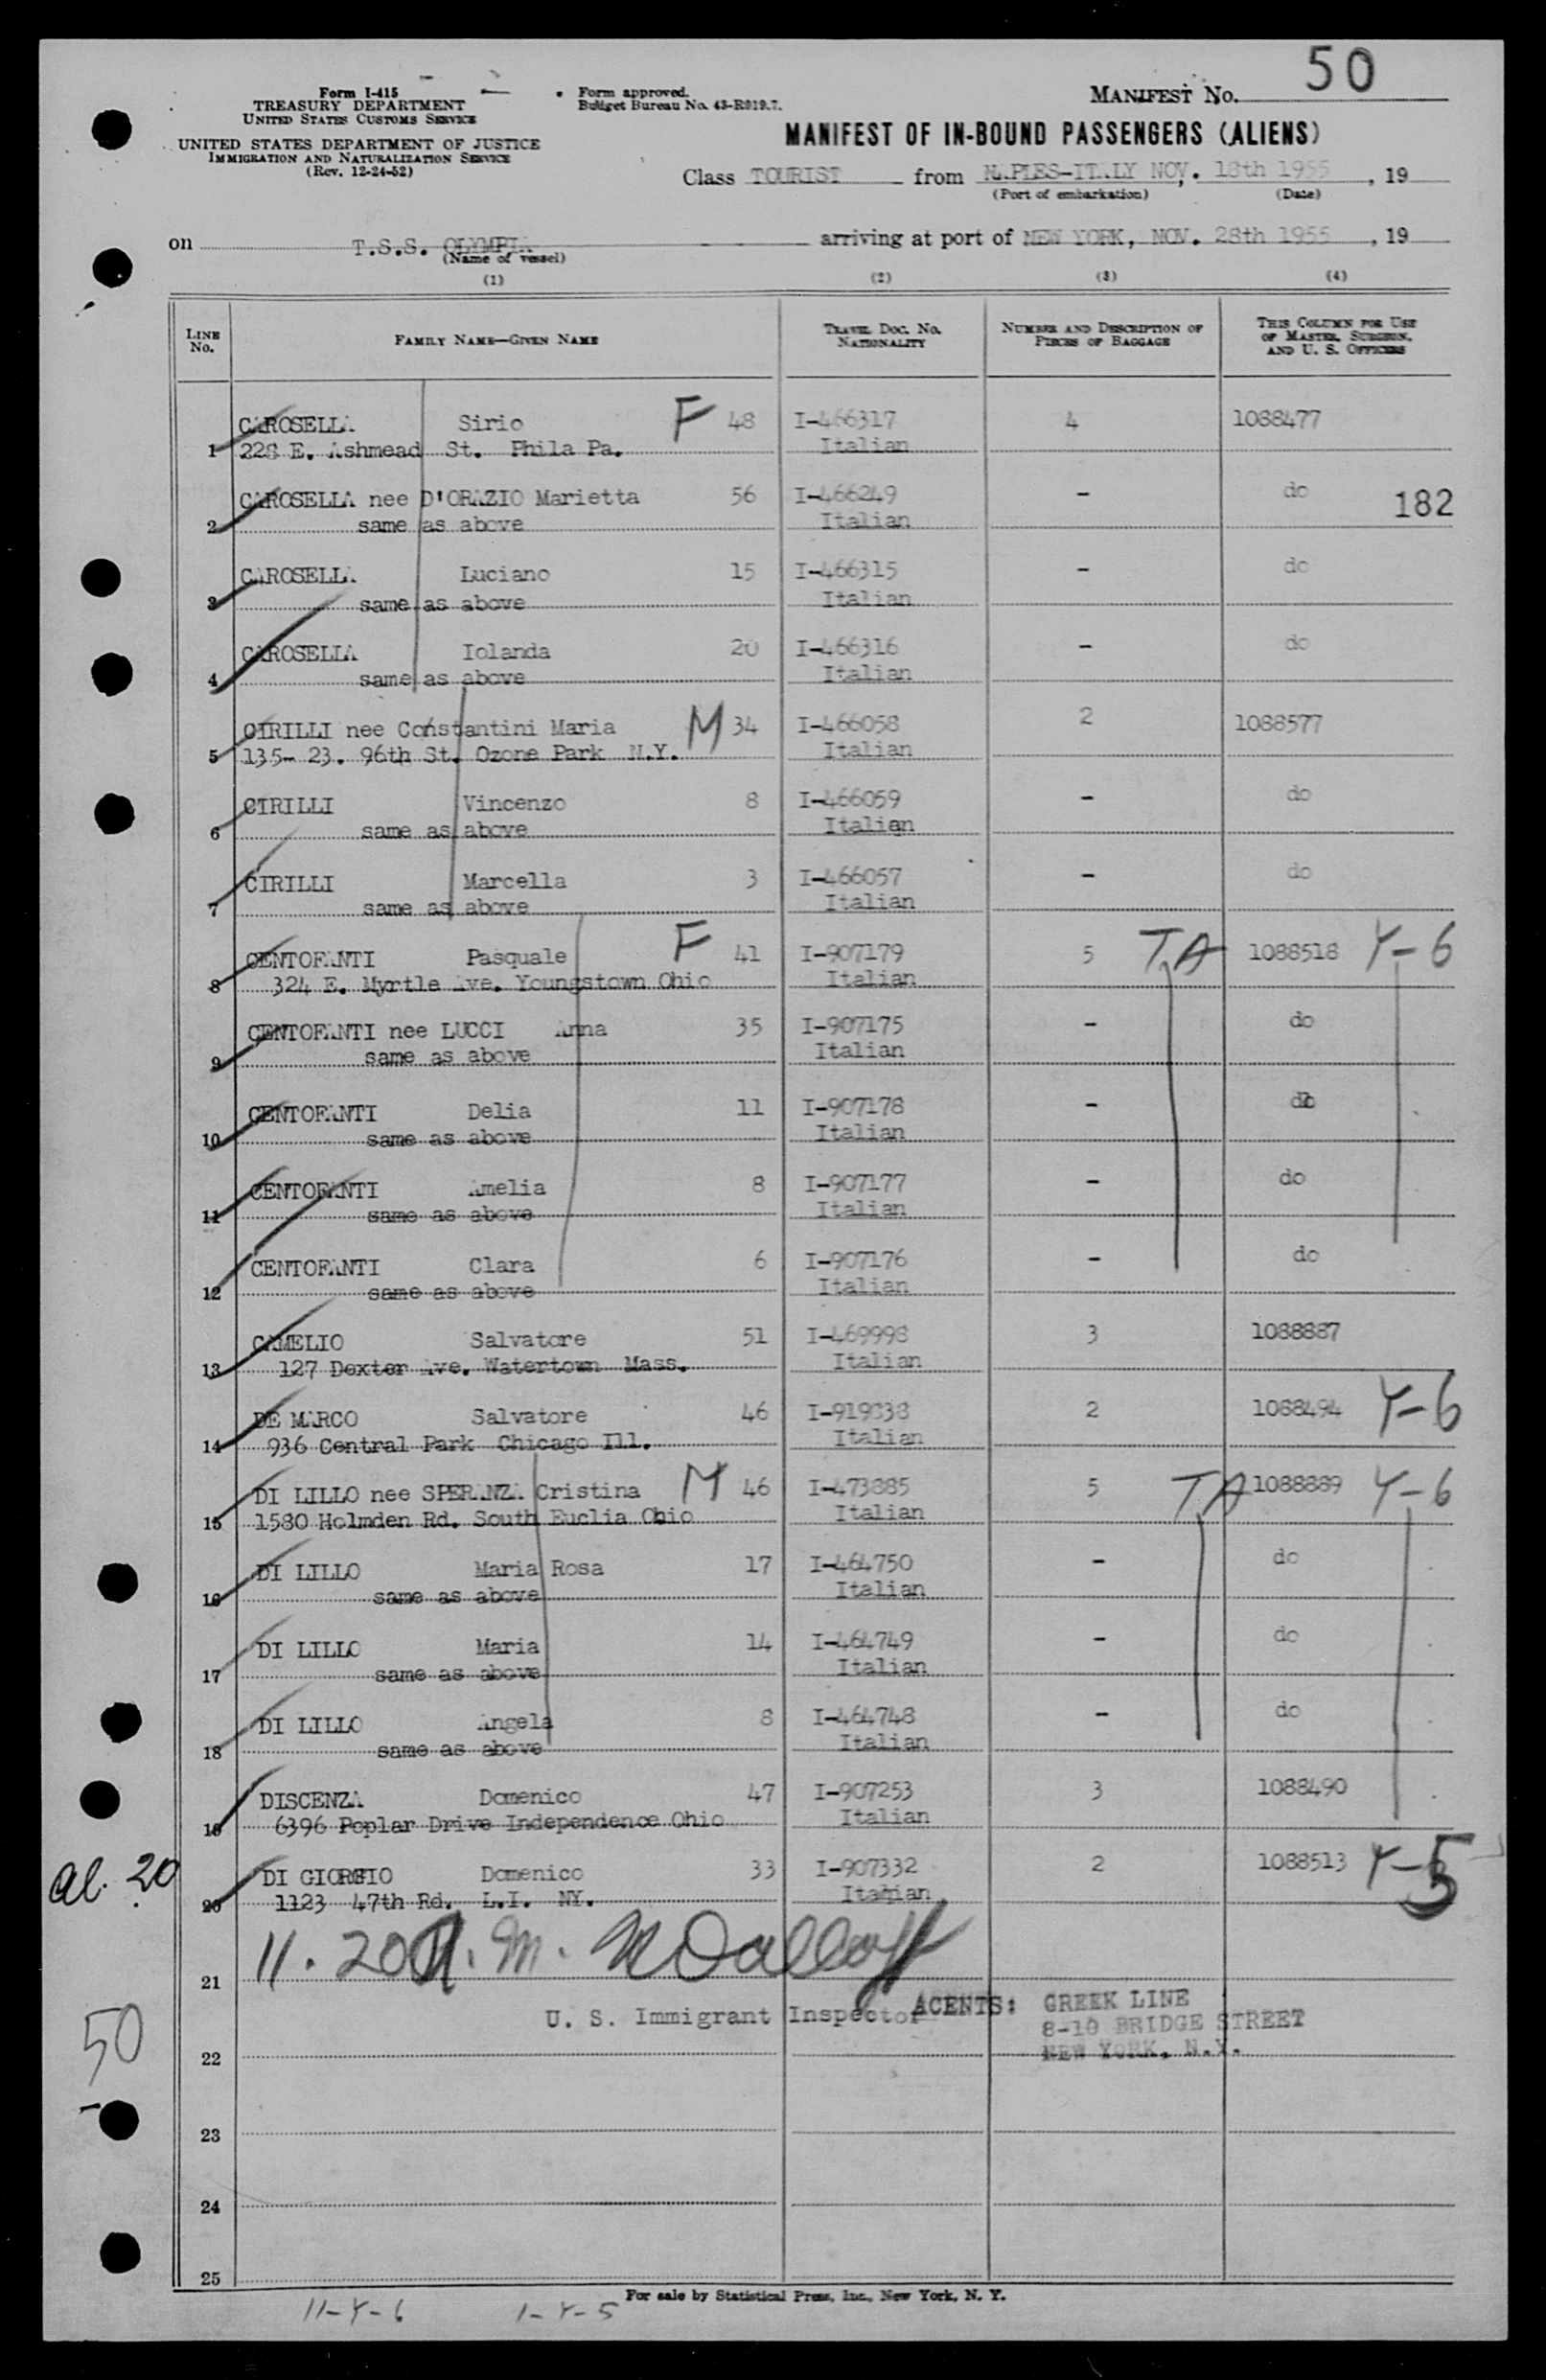 50
Form I-415
TREASURY DEPARTMENT
UNITED STATES CUSTOMS SERVICE
UNITED STATES DEPARTMENT OF JUSTICE
IMMIGRATION AND NATURALIZATION SERVICE
(Rev. 12-24-52)
Form approved.
Budget Bureau No. 43-R019.7.
MANIFEST No.
MANIFEST OF IN-BOUND PASSENGERS (ALIENS)
Class TOURIST from NAPLES-ITALY NOV. 18th 1955, 19
(Port of embarkation) (Date)
on T.S.S. OLYMPIA arriving at port of NEW YORK, NOV. 28th 1955, 19
(Name of vessel)
(1) (2) (3) (4)
LINE No. FAMILY NAME—GIVEN NAME TRAVEL DOC. No. NATIONALITY NUMBER AND DESCRIPTION OF PIECES OF BAGGAGE THIS COLUMN FOR USE OF MASTER, SURGEON, AND U. S. OFFICERS
CAROSELLA Sirio F 48 I-466317 4 1088477
1 228 E. Ashmead St. Phila Pa. Italian
CAROSELLA nee D'ORAZIO Marietta 56 I-466249 - do 182
2 same as above Italian
CAROSELLA Luciano 15 I-466315 - do
3 same as above Italian
CAROSELLA Iolanda 20 I-466316 - do
4 same as above Italian
CIRILLI nee Constantini Maria M 34 I-466058 2 1088577
5 135- 23. 96th St. Ozone Park N.Y. Italian
CIRILLI Vincenzo 8 I-466059 - do
6 same as above Italian
CIRILLI Marcella 3 I-466057 - do
7 same as above Italian
CENTOFANTI Pasquale F 41 I-907179 5 TA 1088518 Y-6
8 324 E. Myrtle Ave. Youngstown Ohio Italian
CENTOFANTI nee LUCCI Anna 35 I-907175 - do
9 same as above Italian
CENTOFANTI Delia 11 I-907178 - do
10 same as above Italian
CENTOFANTI Amelia 8 I-907177 - do
11 same as above Italian
CENTOFANTI Clara 6 I-907176 - do
12 same as above Italian
CAMELIO Salvatore 51 I-469998 3 1088887
13 127 Dexter Ave. Watertown Mass. Italian
DE MARCO Salvatore 46 I-919838 2 1088494 Y-6
14 936 Central Park Chicago Ill. Italian
DI LILLO nee SPERANZA Cristina M 46 I-473885 5 TA 1088889 Y-6
15 1580 Holmden Rd. South Euclia Ohio Italian
DI LILLO Maria Rosa 17 I-464750 - do
16 same as above Italian
DI LILLO Maria 14 I-464749 - do
17 same as above Italian
DI LILLO Angela 8 I-464748 - do
18 same as above Italian
DISCENZA Domenico 47 I-907253 3 1088490
19 6396 Poplar Drive Independence Ohio Italian
DI GIORGIO Domenico 33 I-907332 2 1088513 Y-5
20 1123 47th Rd. L.I. NY. Italian
al. 20
11. 20
21
U. S. Immigrant Inspector
AGENTS: GREEK LINE
8-10 BRIDGE STREET
NEW YORK, N.Y.
50
22
23
24
25
For sale by Statistical Press, Inc., New York, N. Y.
11-Y-6 1-Y-5